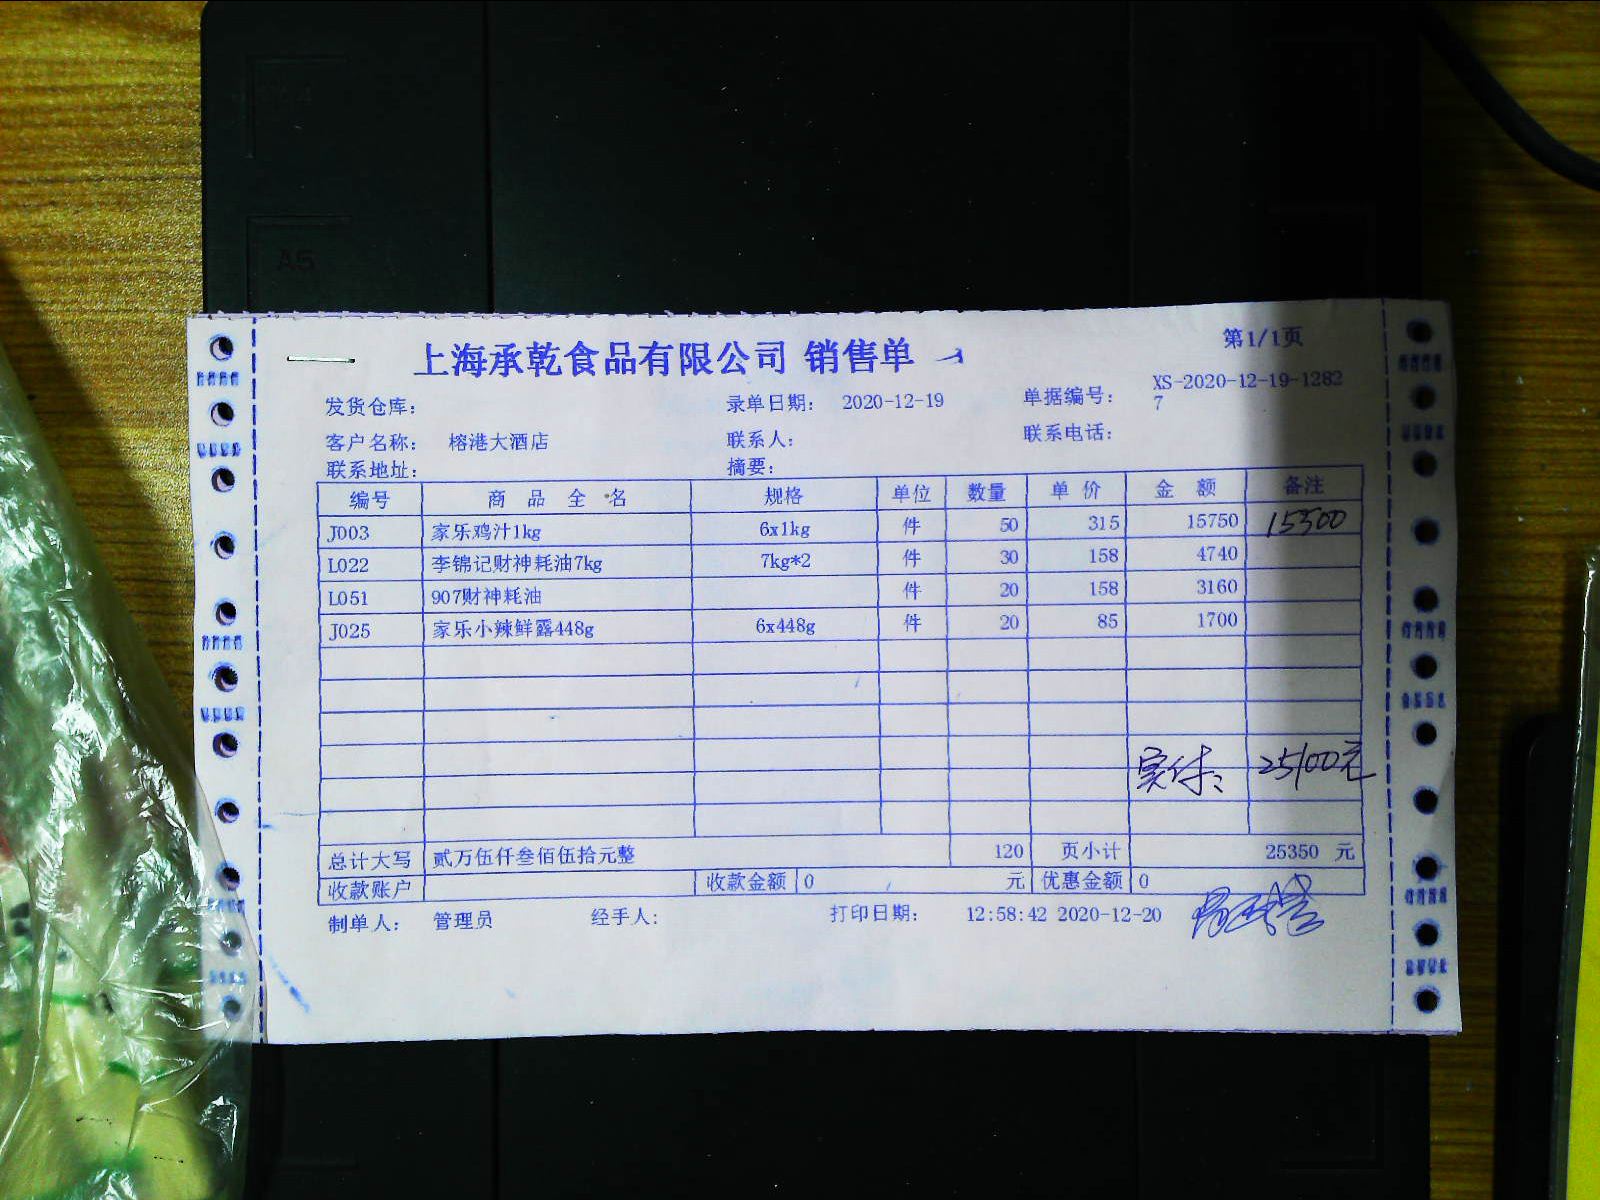 A5
第1/1页
上海承乾食品有限公司 销售单
发货仓库： 录单日期： 2020-12-19 单据编号： XS-2020-12-19-1282
7
客户名称： 榕港大酒店 联系人： 联系电话：
联系地址： 摘要：
编号 商 品 全 名 规格 单位 数量 单 价 金 额 备注
J003 家乐鸡汁1kg 6x1kg 件 50 315 15750 15500
L022 李锦记财神耗油7kg 7kg*2 件 30 158 4740
L051 907财神耗油 件 20 158 3160
J025 家乐小辣鲜露448g 6x448g 件 20 85 1700
实付： 25100元
总计大写 贰万伍仟叁佰伍拾元整 120 页小计 25350 元
收款账户 收款金额 0 元 优惠金额 0
制单人： 管理员 经手人： 打印日期： 12:58:42 2020-12-20